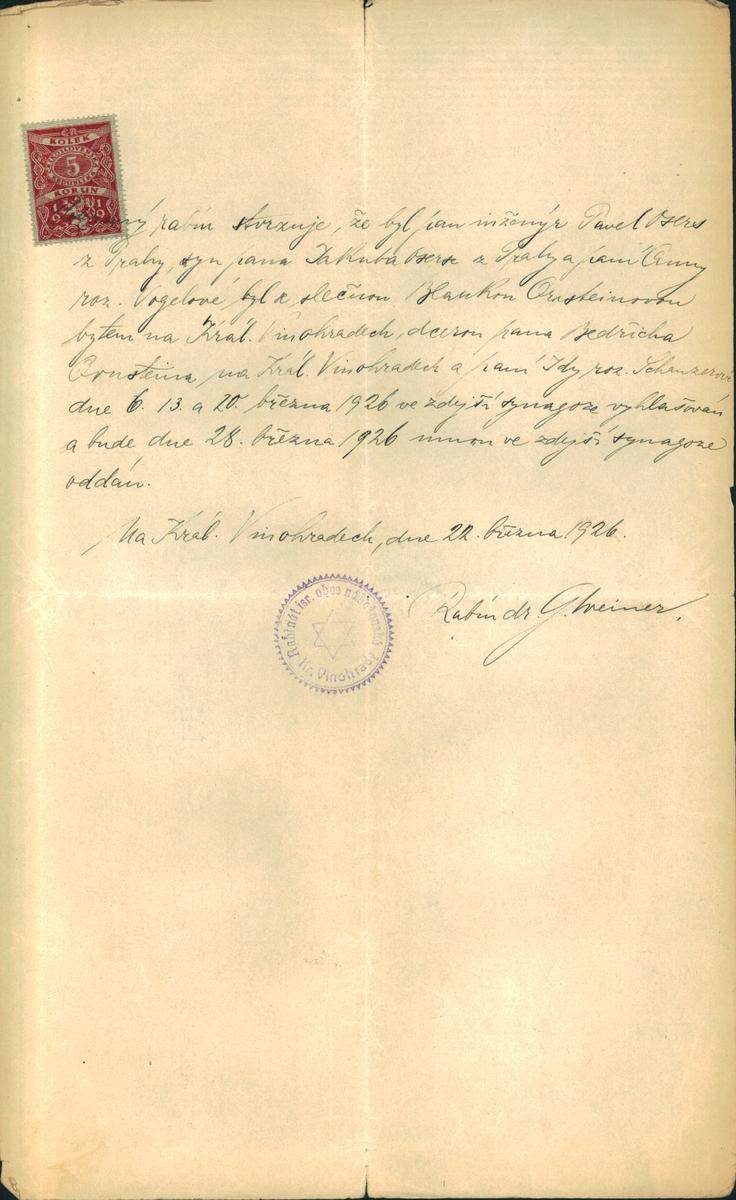 ČR
KOLEK
5
KORUN
1919
rabín stvrzuje, že byl pan inženýr Pavel Osers
z Prahy, syn pana Jakuba Osers z Prahy a paní Anny
roz. Vogelové, byl se slečnou Blankou Ornsteinovou
bytem na Král. Vinohradech, dcerou pana Bedřicha
Ornsteina na Král. Vinohradech a paní Idy roz. Schanzerové
dne 6. 13. a 20. března 1926 ve zdejší synagoze vyhlašován
a bude dne 28. března 1926 mnou ve zdejší synagoze
oddán.
Na Král. Vinohradech, dne 22. března 1926.
Rabinát isr. obce náboženské
Kr. Vinohrady
Rabín dr. G. Weiner.